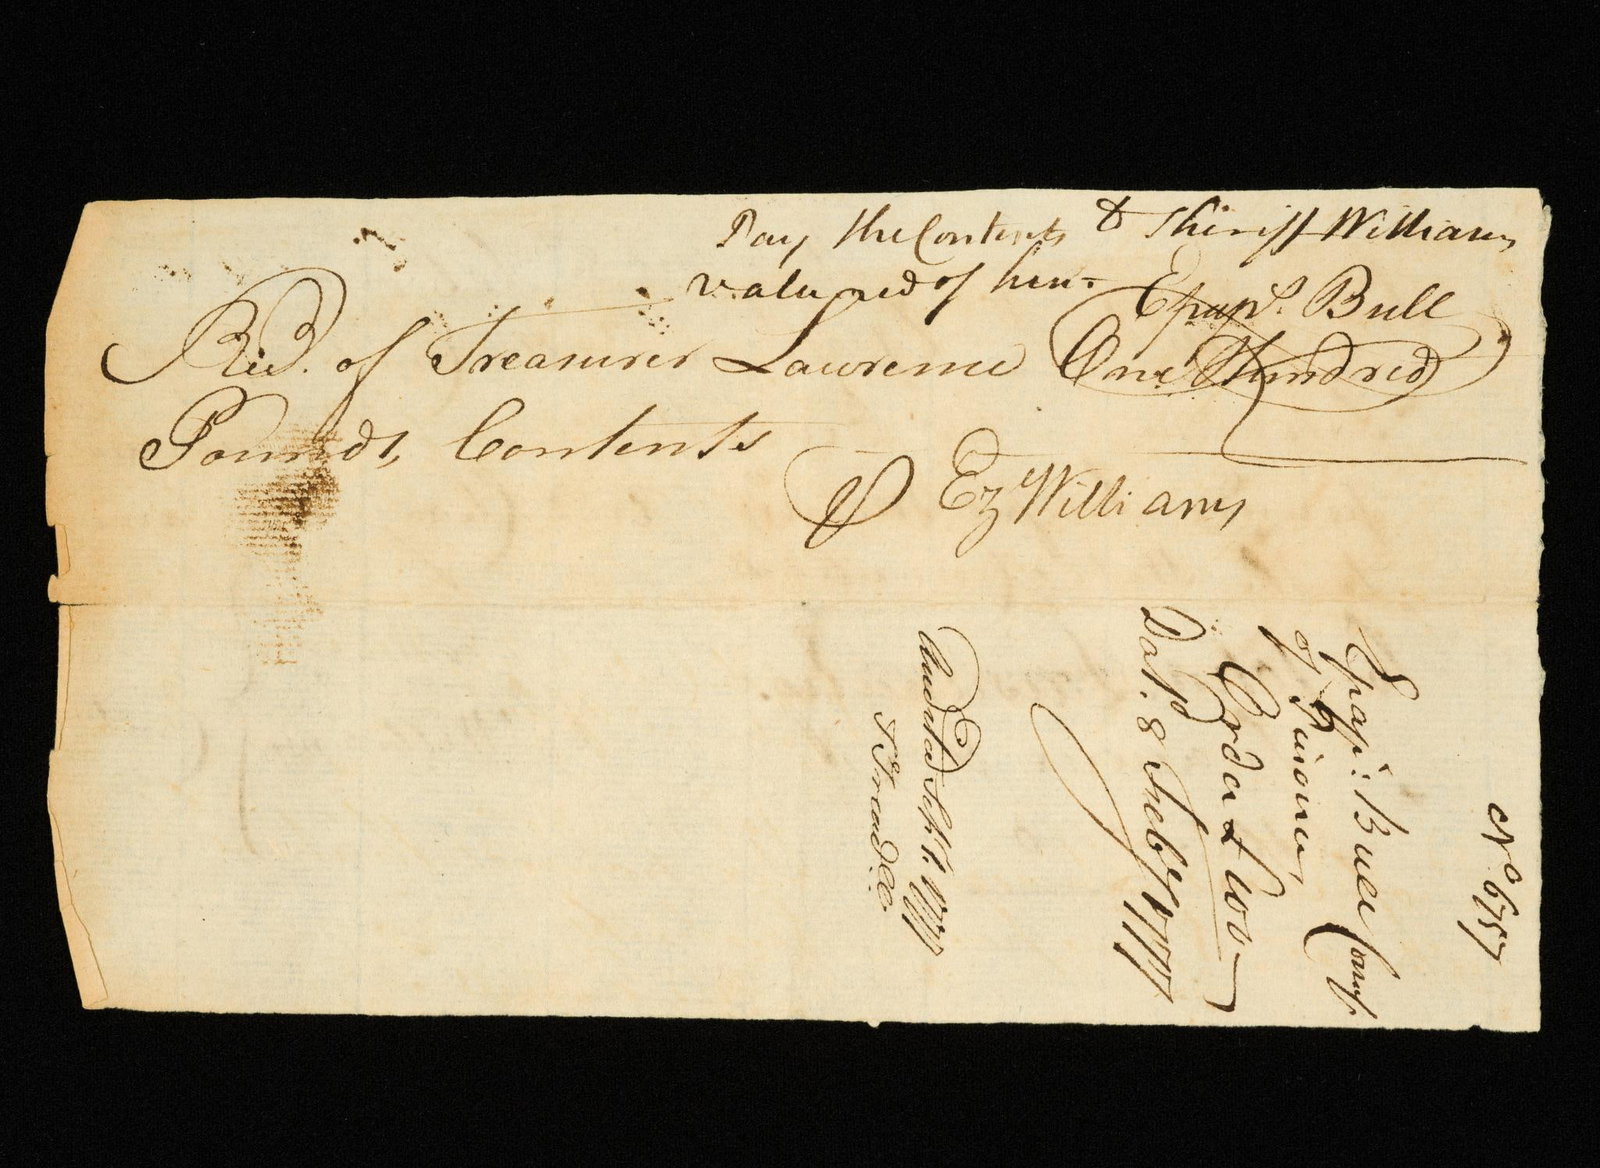 Pay the Contents to Sheriff Williams
value recd of him
Epapˢ. Bull
Recᵈ. of Treasurer Lawrence One Hundred
Pounds, Contents
⅌ Ez Williams
Nᵒ 6757
Epapˢ: Bull
of Prisoners,
Order £100
Datd. 8 Feby 1777
Audited Sepr. 1. 1777